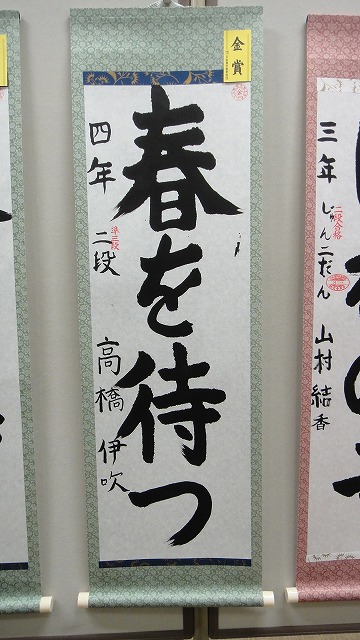 金賞
春を待つ
四年 二段 高橋 伊吹
準三段
三年 じゅん二だん 山村 結香
二段合格